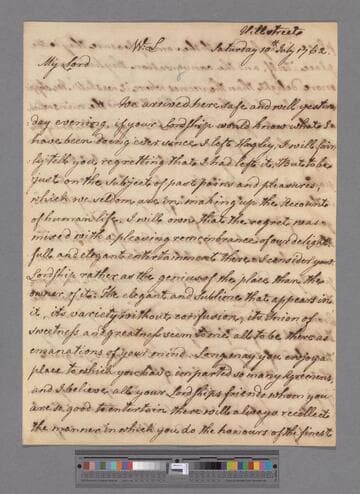 Hillstreet
W. L. Saturday 10th July 1762
My Lord
We arrived here safe and well yester
day evening, if your Lordship would know what I
have been doing ever since I left Hagley, I will fair
ly tell you, regretting that I had left it. But to be
just on the subjects of past pains and pleasures,
which we seldom are in making up the Accounts
of human life, I will own that the regret was
mixed with a pleasing remembrance of our delight
full and elegant entertainment there. I consider your
Lordship rather as the genius of the place than the
owner of it. The elegant and Sublime that appears in
it, its variety without confusion, its Union of
sweetness and greatness seem to me all to be there as
emanations of your mind. Long may you enjoy a
place to which you have imparted so many Agremens,
and I believe all your Lordships friends whom you
are so good to entertain there will always recollect
the manner in which you do the honours of the finest